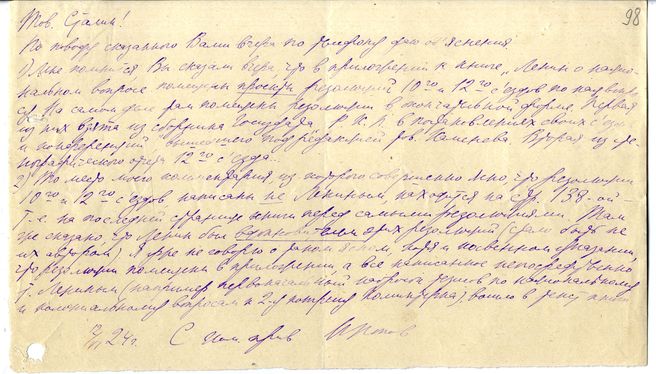 98
Тов. Сталин!
По поводу сказанного Вами вчера по телефону даю об'яснения
1) Мне помнится Вы сказали вчера, что в приложении к книге "Ленин о нацио-
нальном вопросе помещены проекты резолюций 10го и 12го с'ездов по нацвопро-
су. На самом деле там помещены резолюции в окончательной форме. Первая
из них взята из сборника Госиздата Р.К.П. в постановлениях своих с'ез-
дов и конференций вышедшего под редакцией тов. Каменева. Вторая из сте-
нографического отчета 12го с'езда.
2) То место моего комментария, из которого совершенно ясно что резолюции
10го и 12го с'ездов написаны не Лениным, находится на стр. 138-ой -
т.-е. на последней странице книги перед самыми резолюциями. Там
же сказано, что Ленин был этих резолюций (стало быть не
их автором). Я уже не говорю о таком ясном, хотя и косвенном указании,
что резолюции помещены в приложении, а все написанное непосредственно
т. Лениным (например первоначальный набросок тезисов по национальному
и колониальному вопросам к 2-му конгрессу коминтерна), вошло в текст книги
24г. С ком. прив